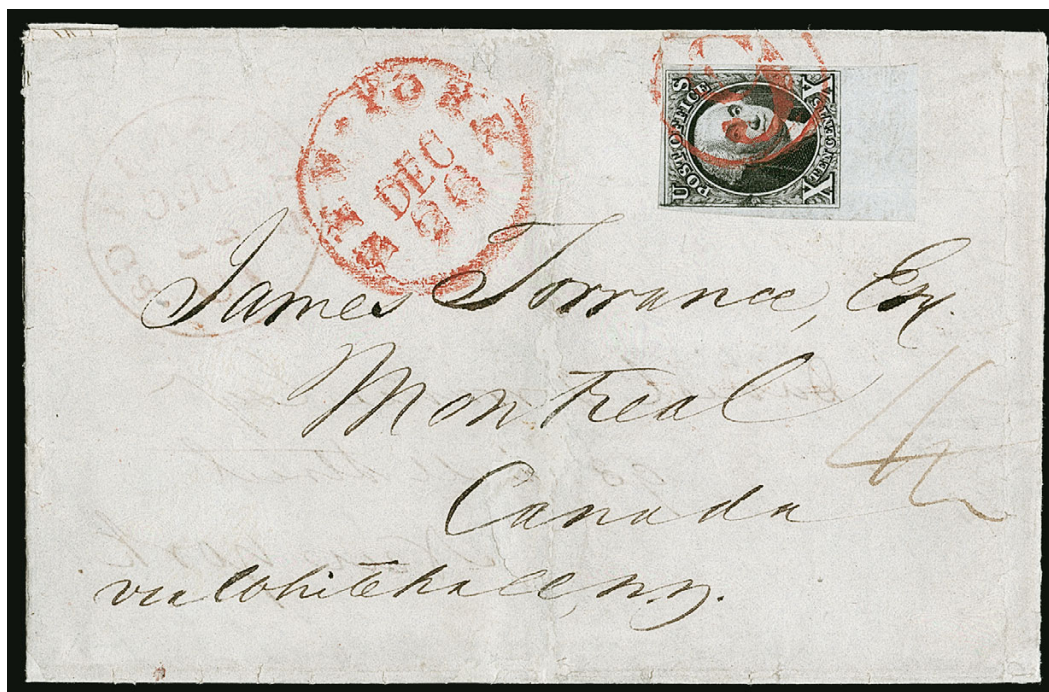 NEW-YORK
DEC
26
U S
POST OFFICE
X X
James Torrance, Esq.
Montreal
Canada
via Whitehall, N.Y.